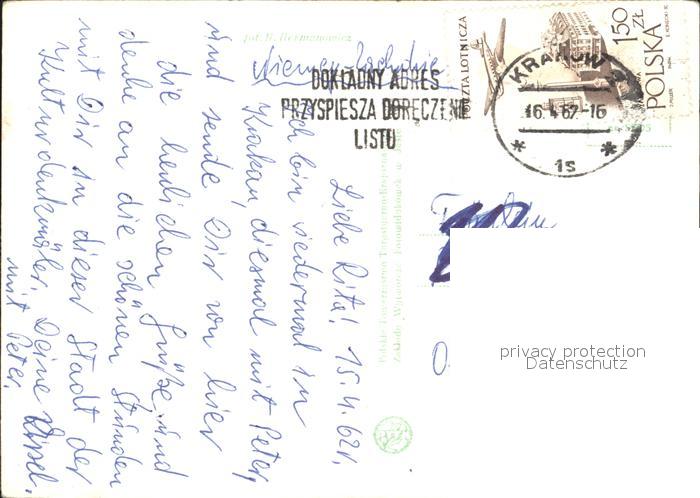 Liebe Rita! 15.4.62r.
Ich bin wiedermal in
Krakau, diesmal mit Peter,
und sende Dir von hier
die herzlichen Grüße und
denke an die schönen Stunden
mit Dir in dieser Stadt der
Kulturdenkmäler. Deine
mit Peter.
fot. H. Hermanowicz
Niemcy-Zachodnie
DOKŁADNY ADRES
PRZYSPIESZA DORĘCZENIE
LISTU
POCZTA LOTNICZA
1,50 ZŁ
POLSKA
KRAKÓW 2
16.4.62-16
1s
privacy protection
Datenschutz